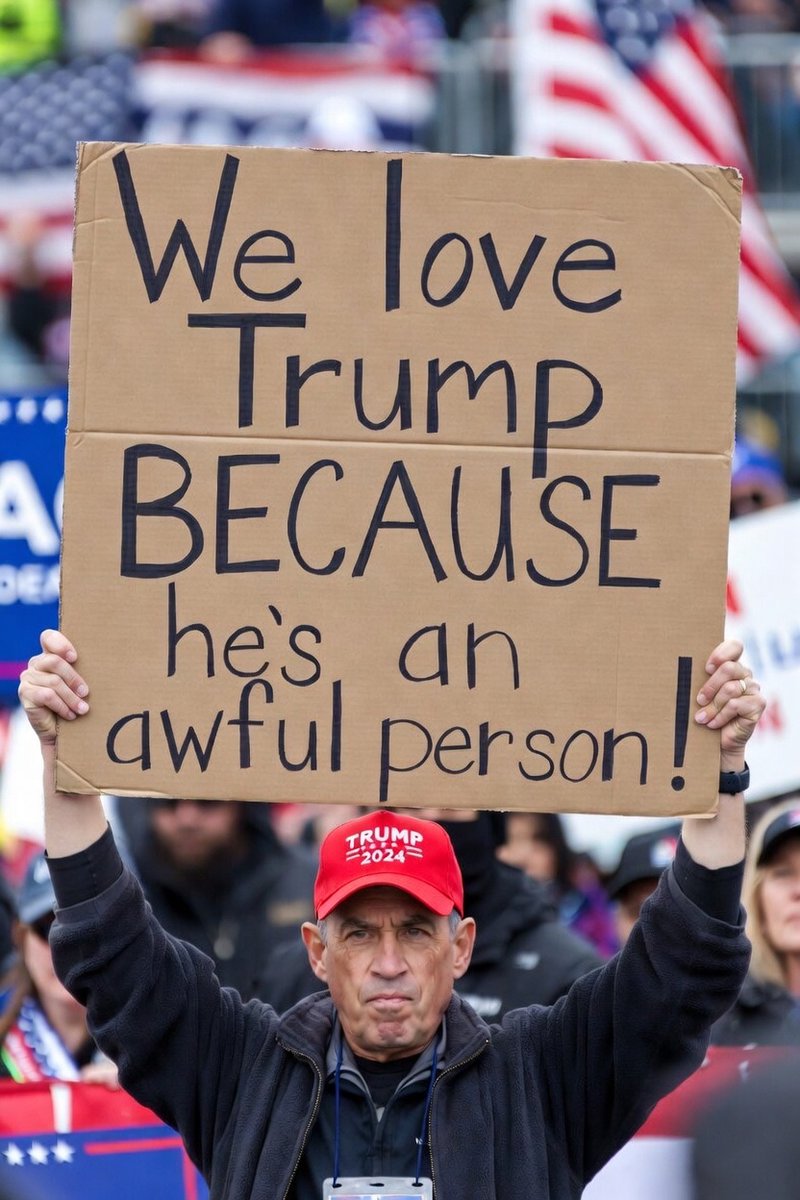 We love
Trump
BECAUSE
he's an
awful person!
TRUMP
2024